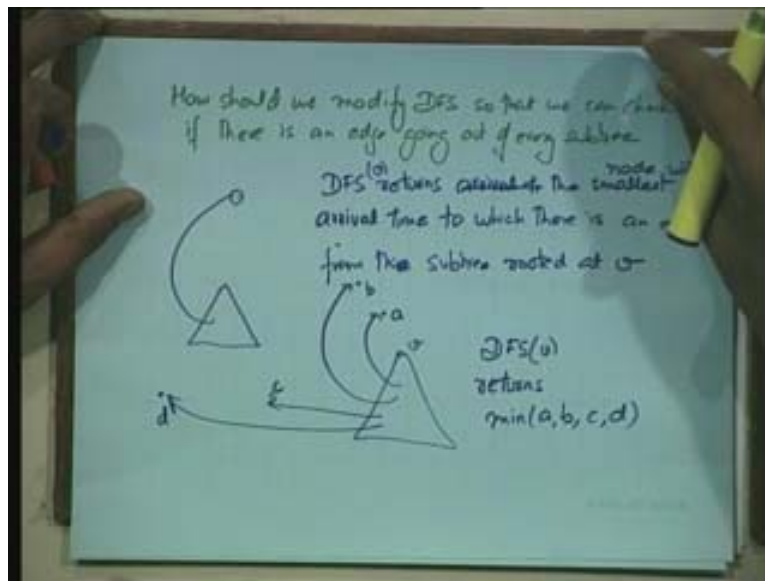 How should we modify DFS so that we can
if there is an edge going out of every subtree
node
DFS(v) returns the smallest
arrival time to which there is an
from the subtree rooted at v
b
a
v
DFS(v)
returns
min(a, b, c, d)
c
d